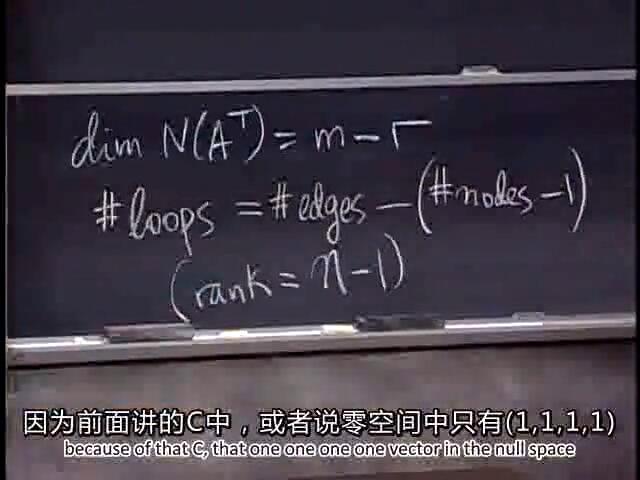 dim N(Aᵀ) = m - r
#loops = #edges - (#nodes - 1)
(rank = n - 1)
因为前面讲的C中，或者说零空间中只有(1,1,1,1)
because of that C, that one one one one vector in the null space